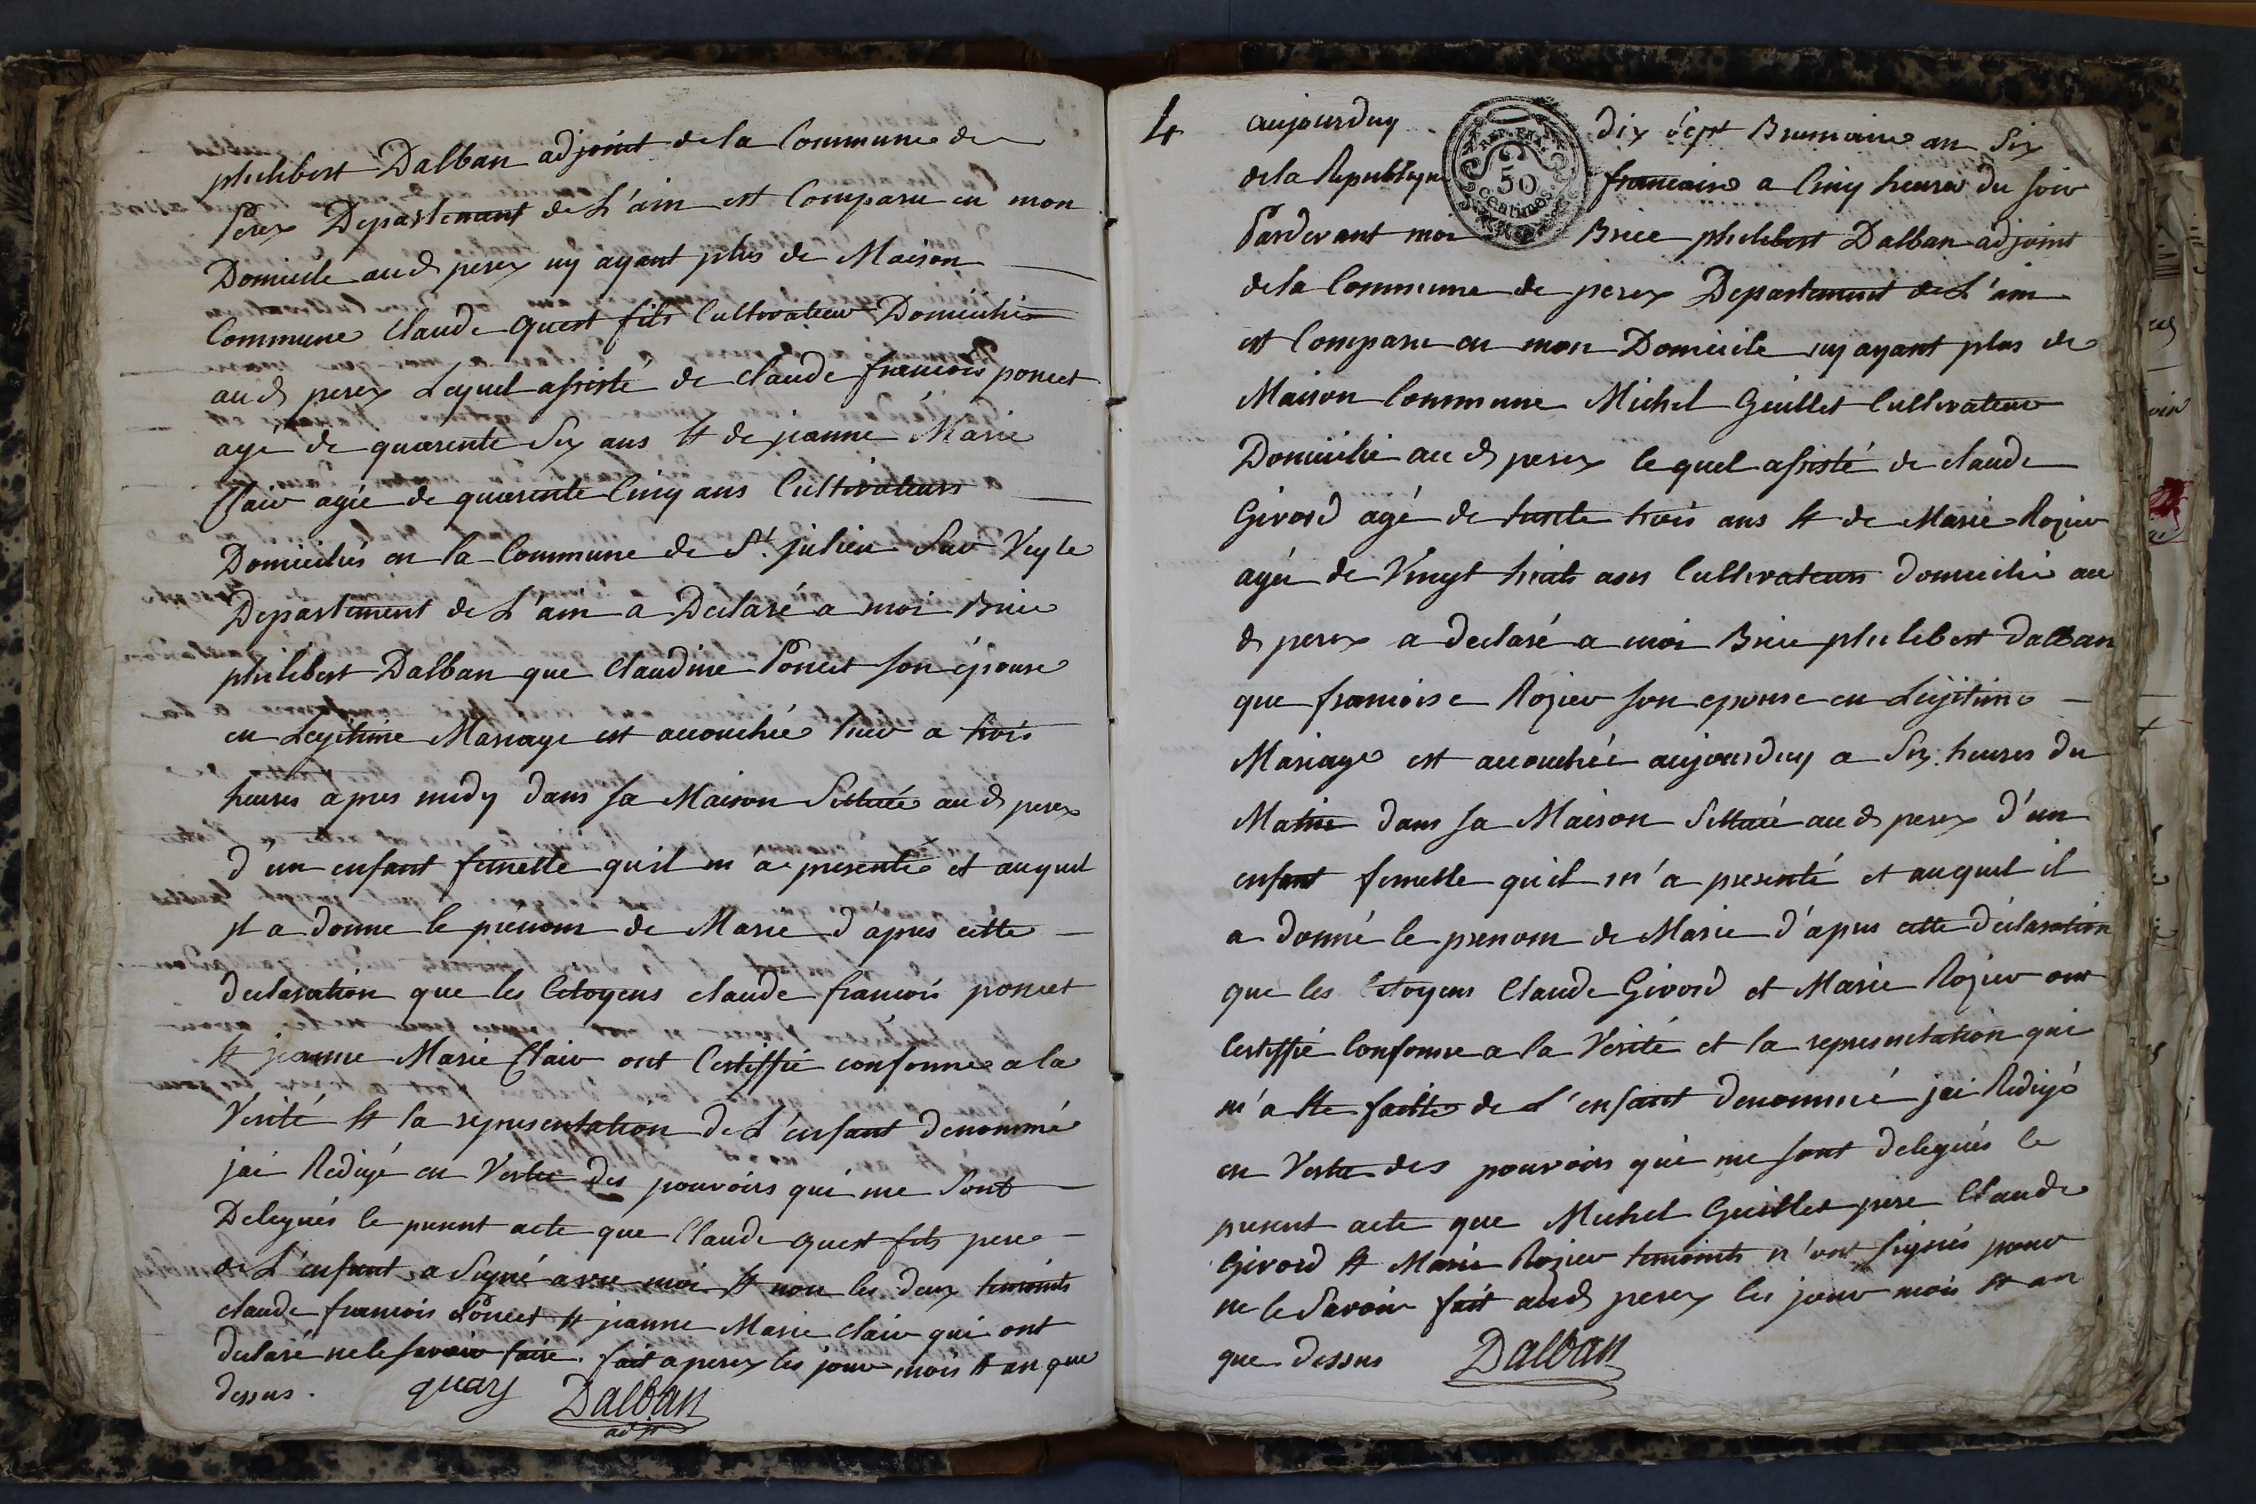 philibert Dalban adjoint de la Commune de
Perex Departement de L'ain est Comparu en mon
Domicile aud perex ny ayant plus de Maison
Commune Claude quest fils Cultivateur Domicilié
aud perex Lequel assisté de claude francois poncet
agé de quarente Six ans et de jeanne Marie
Clair agée de quarente Cinq ans Cultivateurs
Domiciliés en la Commune de St. julien Sur Veyle
Departement de L'ain a Declaré a moi Brice
philibert Dalban que Claudine Poncet son épouse
en Legitime Mariage est accouchée hier a trois
heures apres midy dans sa Maison Scituée aud perex
d'un enfant femelle qu'il m'a presenté et auquel
il a donne le prénom de Marie d'apres cette
declaration que les Citoyens claude francois poncet
et jeanne Marie Clair ont Certiffié conforme a la
Verité et la representation de L'enfant denommé
jai Redigé en Vertu des pouvoirs qui me Sont
Delegués le present acte que Claude quest fils pere
de L'enfant a Signé avec moi et non les deux temoints
claude francois Poncet et jeanne Marie Clair qui ont
declaré ne le savoir faire. fait a perex les jour mois et an que
dessus. quay Dalban
adjt
4 aujourduy dix sept Brumaire an Six
de la Republique francaise a Cinq heures du soir
REP. FRA.
50
Centimes
Pardevant moi Brice philibert Dalban adjoint
de la Commune de perex Departement de L'ain
est Comparu en mon Domicile ny ayant plus de
Maison Commune Michel Guillet Cultivateur
Domicilié aud perex lequel assisté de claude
Girord agé de trente trois ans et de Marie Rozier
agée de Vingt huit ans Cultivateurs domicilié au
d perex a declaré a moi Brice philibert dalban
que francoise Rozier son epouse en Legitime
Mariage est accouchée aujourduy a Six heures du
Matin dans sa Maison Scituée aud perex d'un
enfant femelle qu'il m'a presenté et auquel il
a donné le prenom de Marie d'apres cette déclaration
que les Citoyens Claude Girord et Marie Rozier ont
Certiffié Conforme a la Verité et la representation qui
m'a ete faitte de L'enfant denommé jai Redigé
en Vertu des pouvoirs qui me sont delegués le
present acte que Michel Guillet pere Claude
Girord et Marie Rozier temoints n'ont signés pour
ne le Savoir fait aud perex les jour mois et an
que dessus Dalban